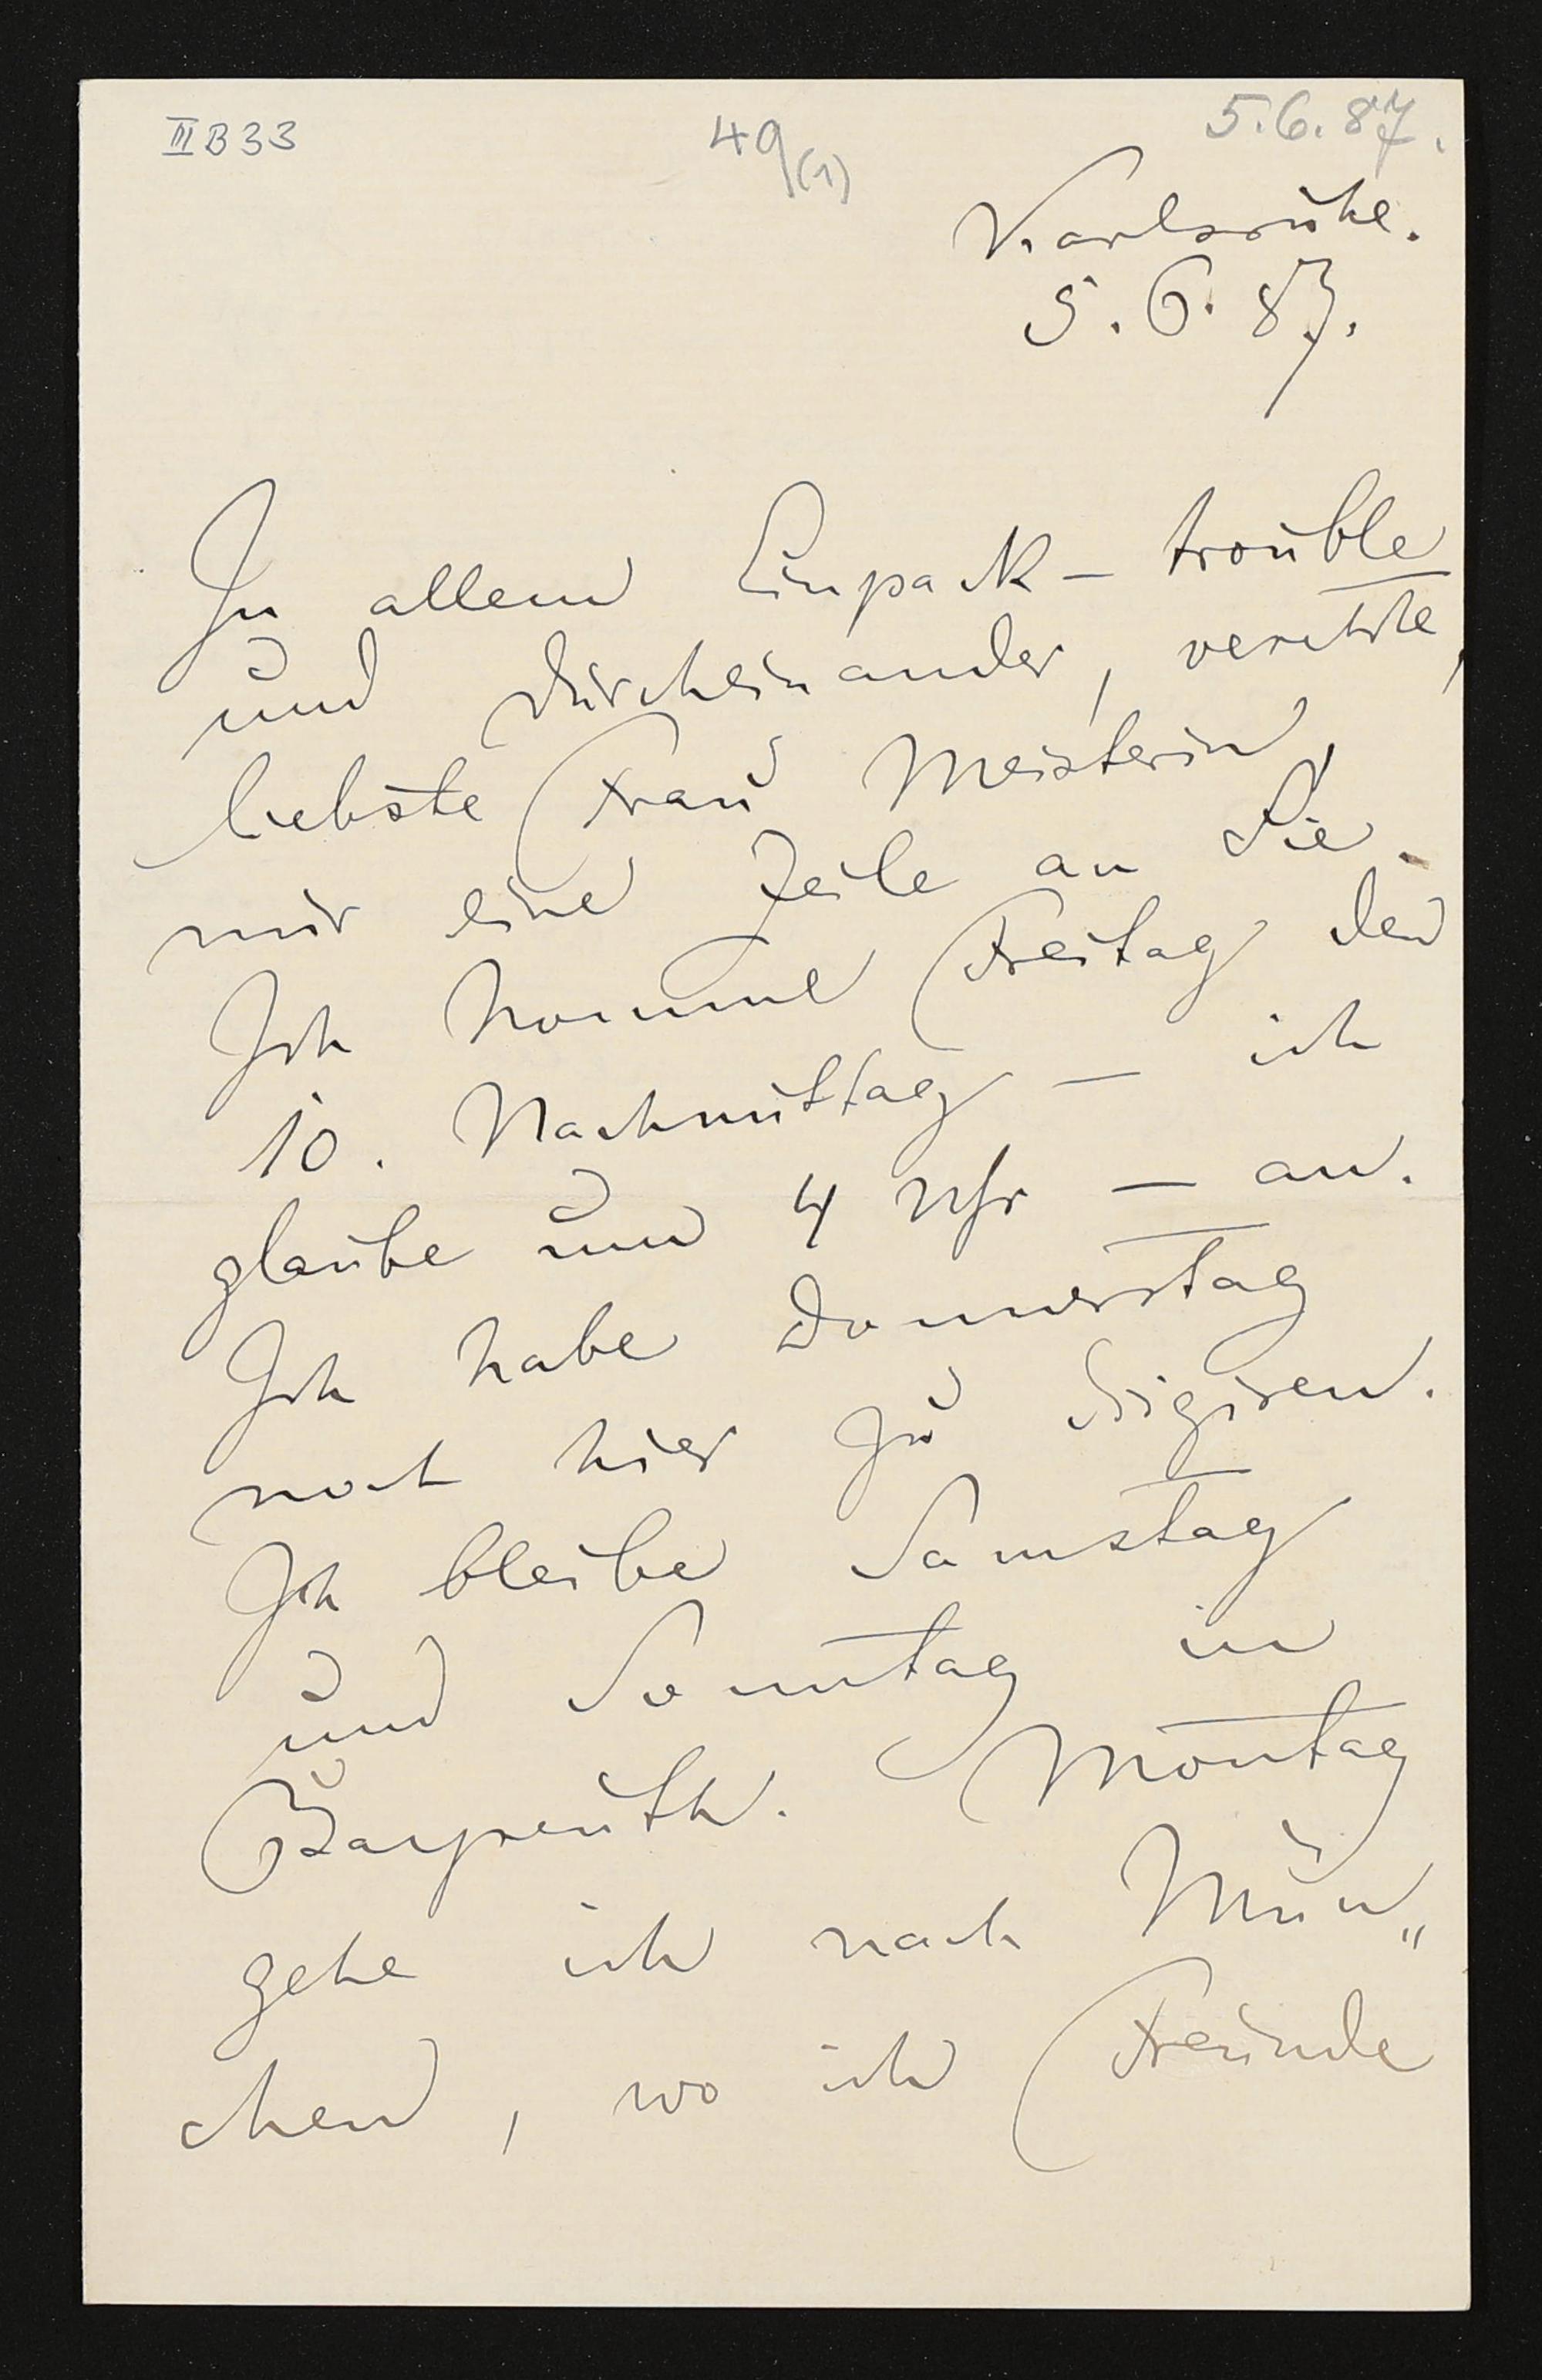 III B 33
49(1)
5.6.87.
Karlsruhe.
5.6.87.
In allem Einpack-trouble
und durcheinander, verehrte,
liebste Frau Meisterin,
nur eine Zeile an Sie.
Ich komme Freitag den
10. Nachmittag – ich
glaube um 4 Uhr – an.
Ich habe Donnerstag
noch hier zu dirigiren.
Ich bleibe Samstag
und Sonntag in
Bayreuth. Montag
gehe ich nach Mün„
chen, wo ich Freunde